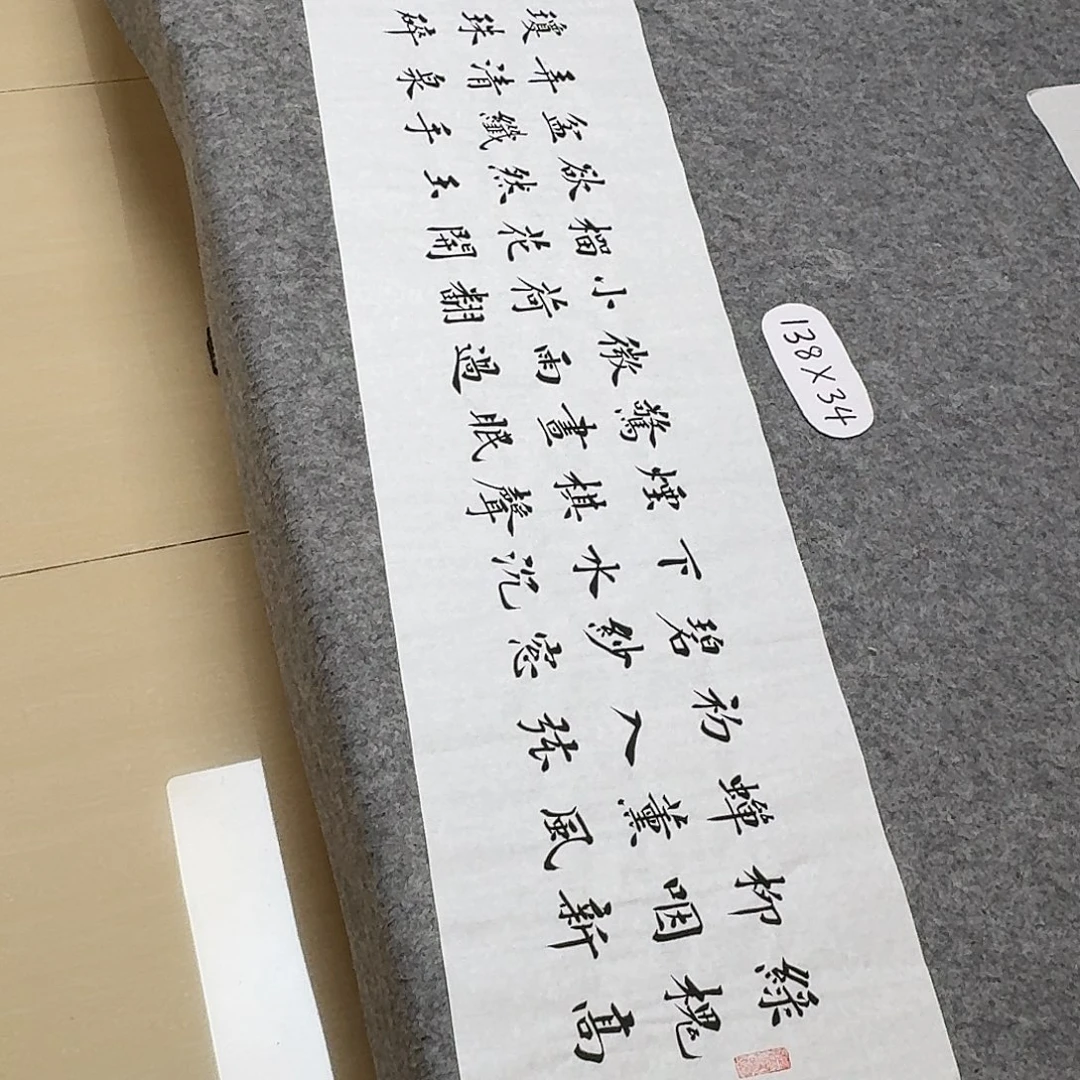 綠槐高
柳咽新
蟬薰風
初入弦
碧紗窓
下水沉
煙棋聲
驚晝眠
微雨過
小荷翻
榴花開
欲然玉
盆纖手
弄清泉
瓊珠碎
138X34